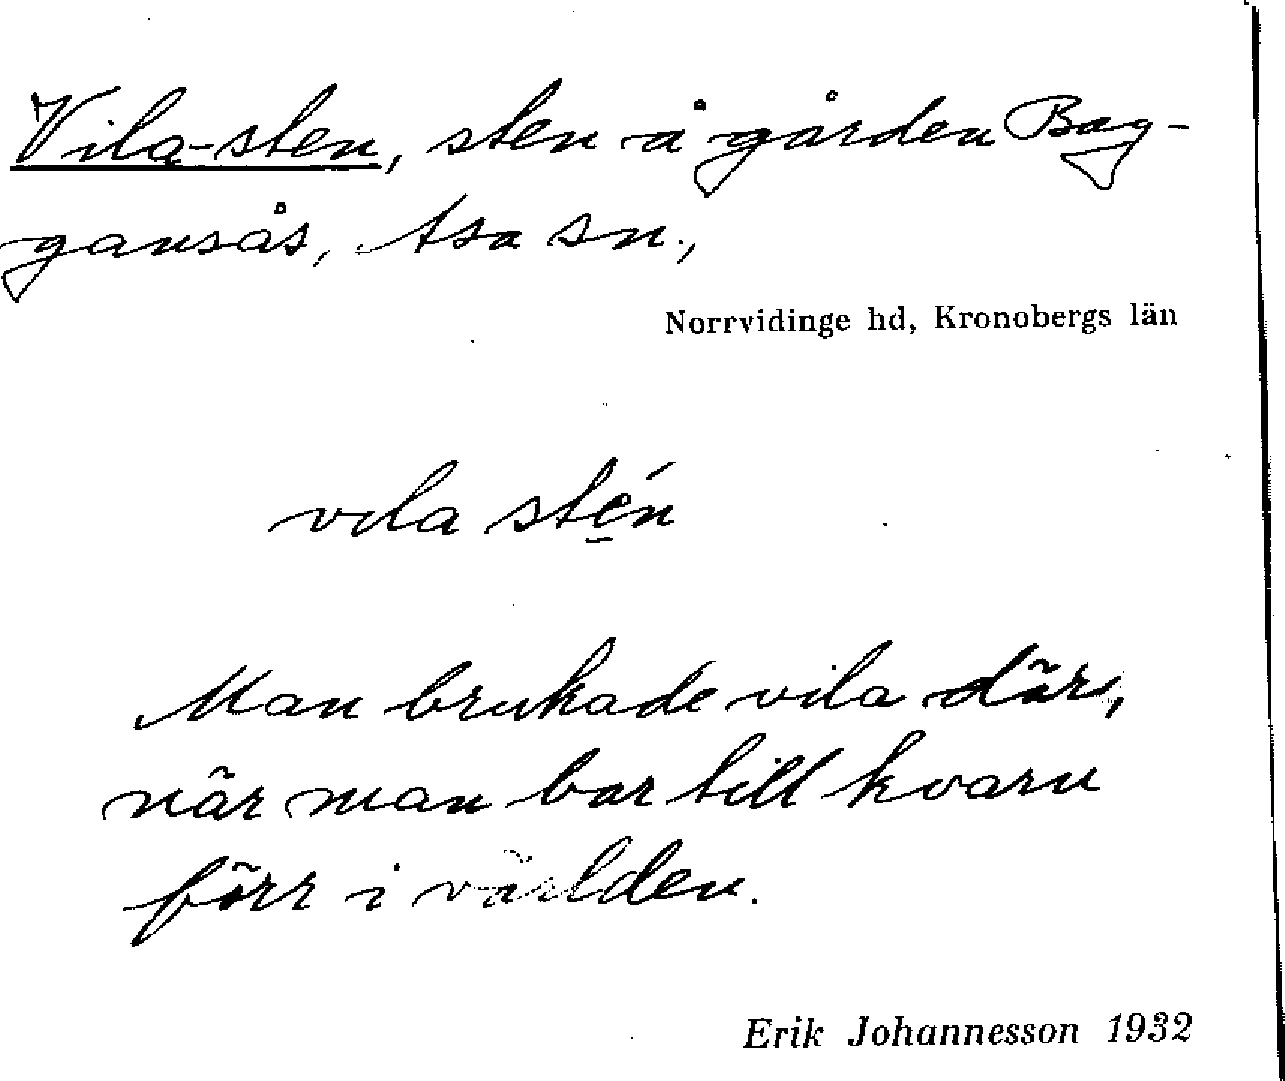 Vila-sten, sten å gården Bag-
gansås, Asa sn.,
Norrvidinge hd, Kronobergs län
vila stén
Man brukade vila där,
när man bar till kvarn
förr i världen.
Erik Johannesson 1932